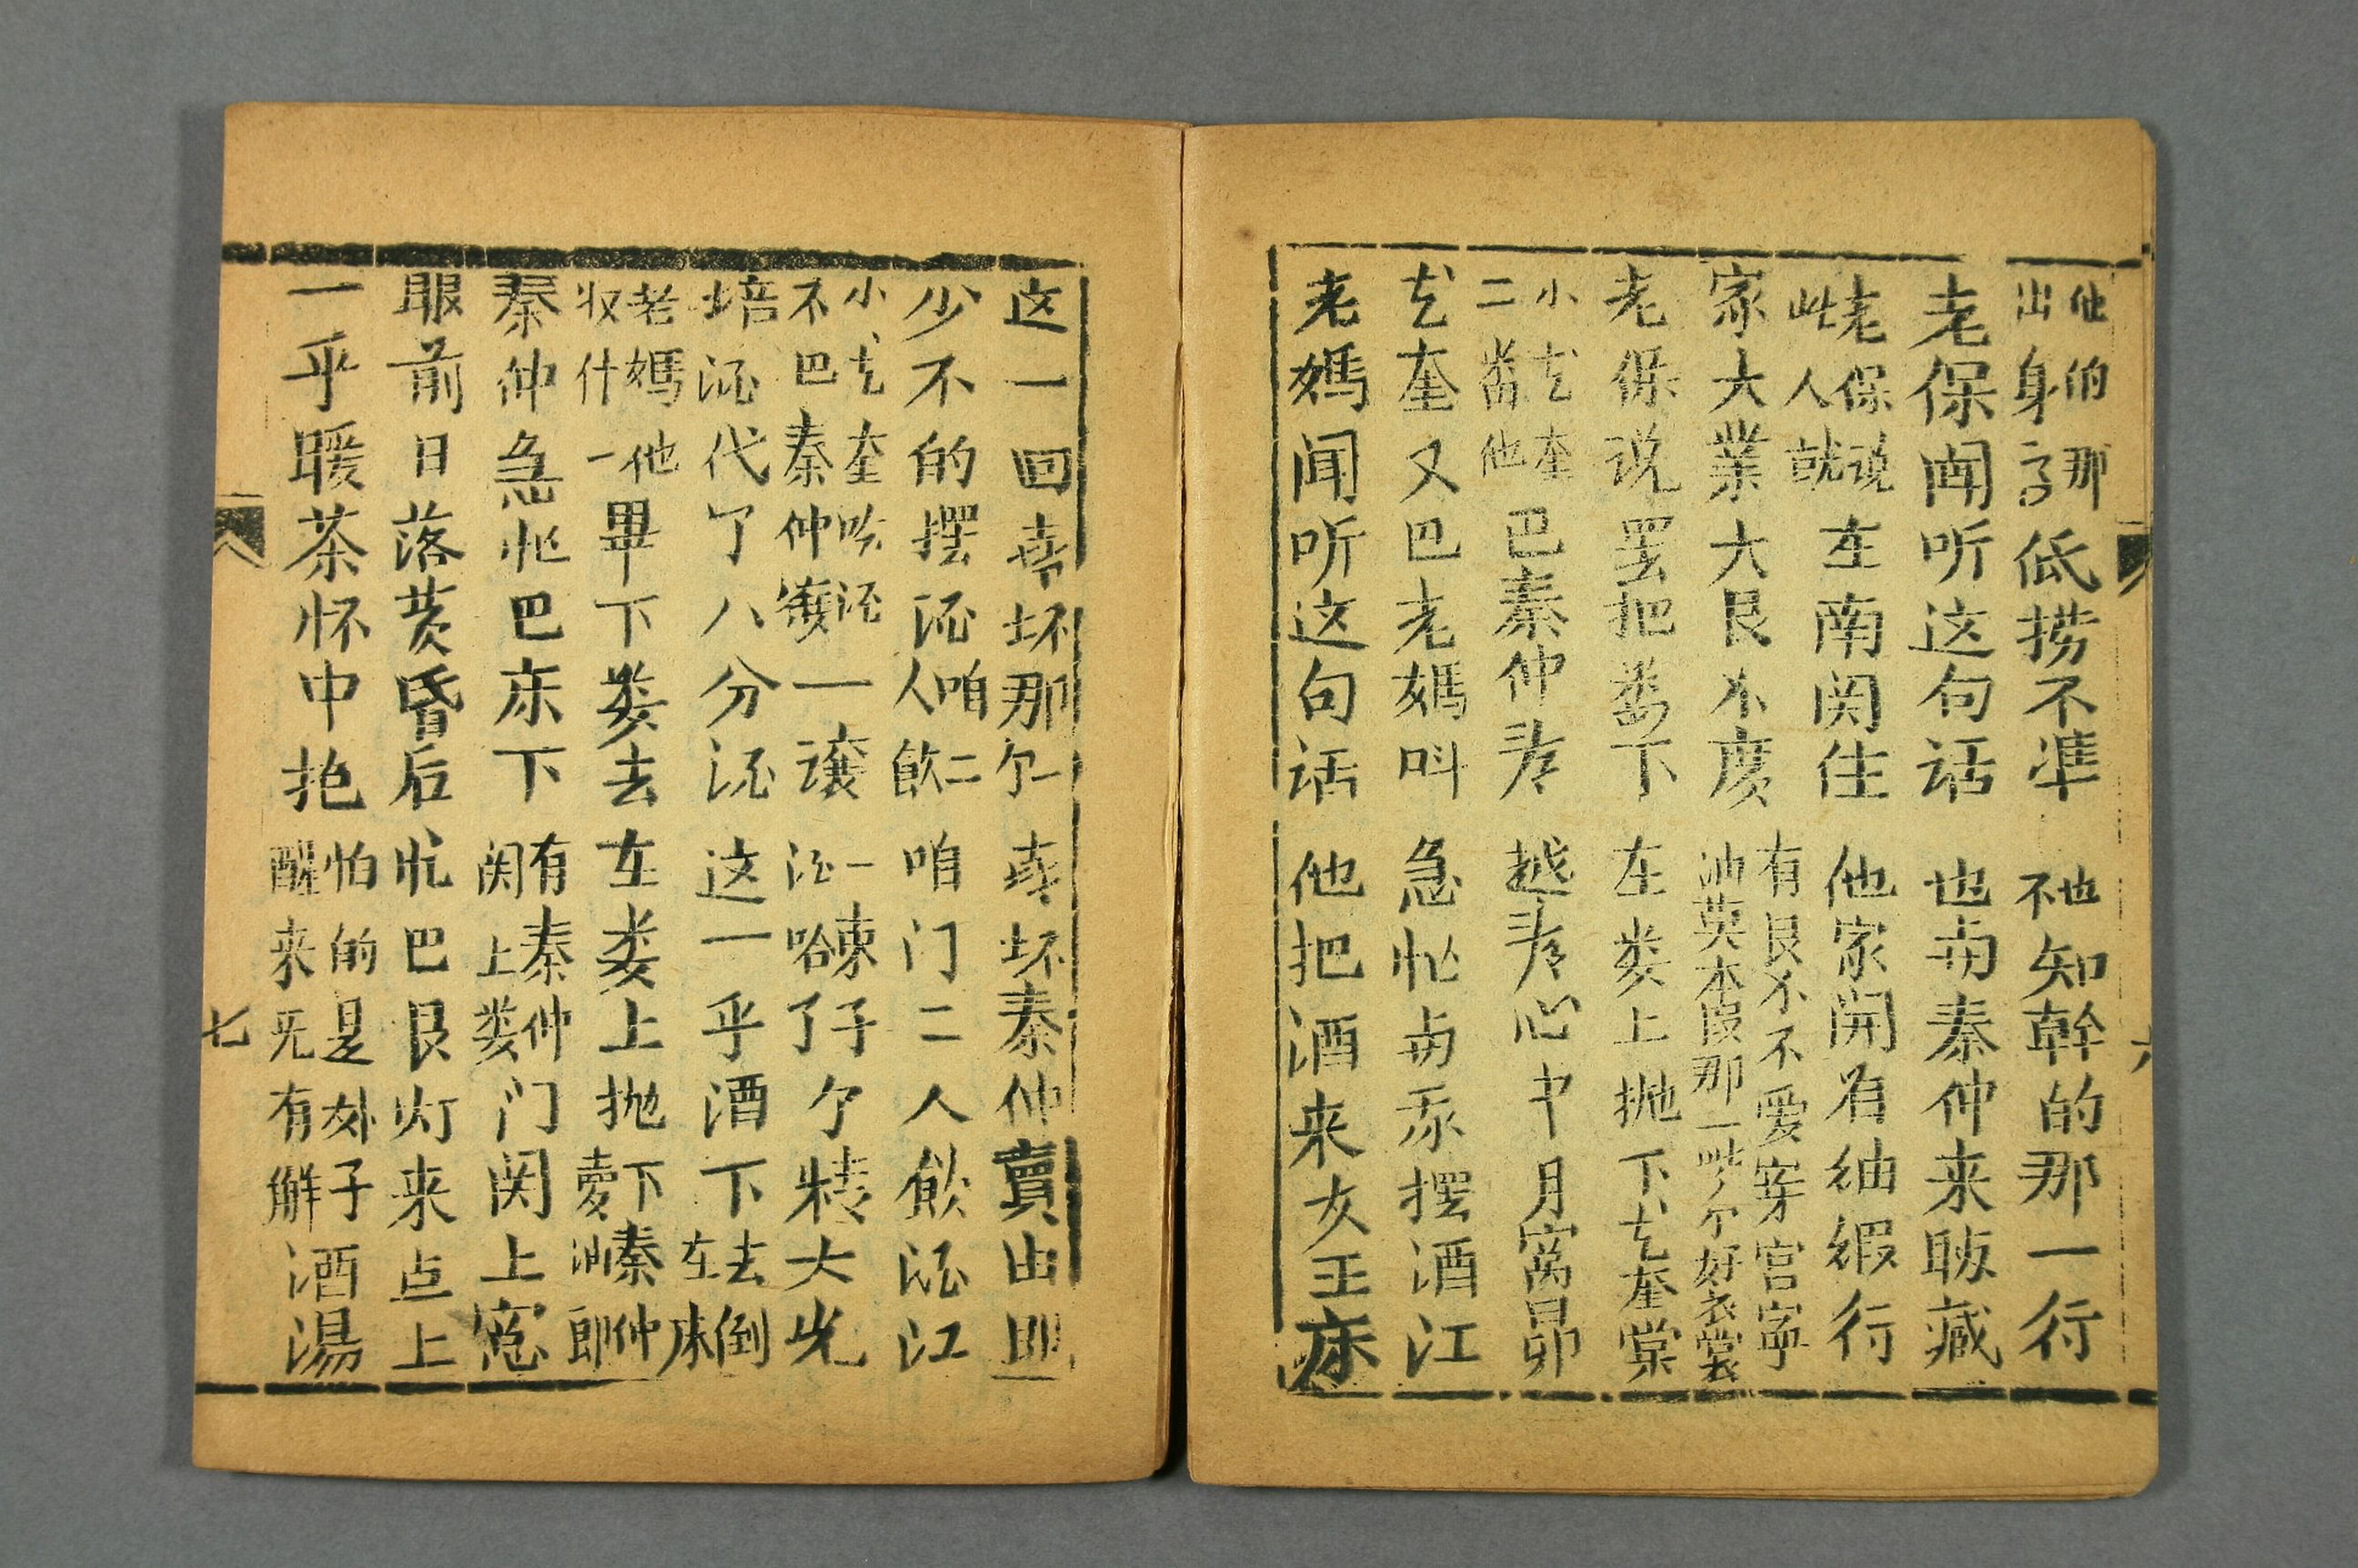 他的那出身言低捞不準 他不知幹的那一行
老保闻听这句话 也与秦仲来贩藏
老保说此人就在南関住 他家開有紬缎行
家大業大艮不度 有艮不不爱穿宫寧油英本假那一些个好衣裳
老保说罢把娄下 在娄上抛下尤奎棠
小尤奎二畨他巴秦仲考 越考心中月窝昴
尤奎又巴老媽叫 急忙与奈摆酒江
老媽闻听这句话 他把酒来女王床
这一回喜坏那个一 喜坏秦仲賣由
少不的摆酒咱二人飲 咱门二人飲酒江
小尤奎吟酒不巴秦仲讓 一束子酒哈了个精大光
培酒代了八分酒 这一乎酒下去倒在床
老媽他收什一畢下娄去 在娄上抛下秦仲賣油郎
秦仲急忙巴床下 有秦仲関上娄门関上窓
眼前日落黄昏后 忙巴艮灯来点上
一乎暖茶怀中抱 怕的是妏子醒来旡有觧酒湯
七